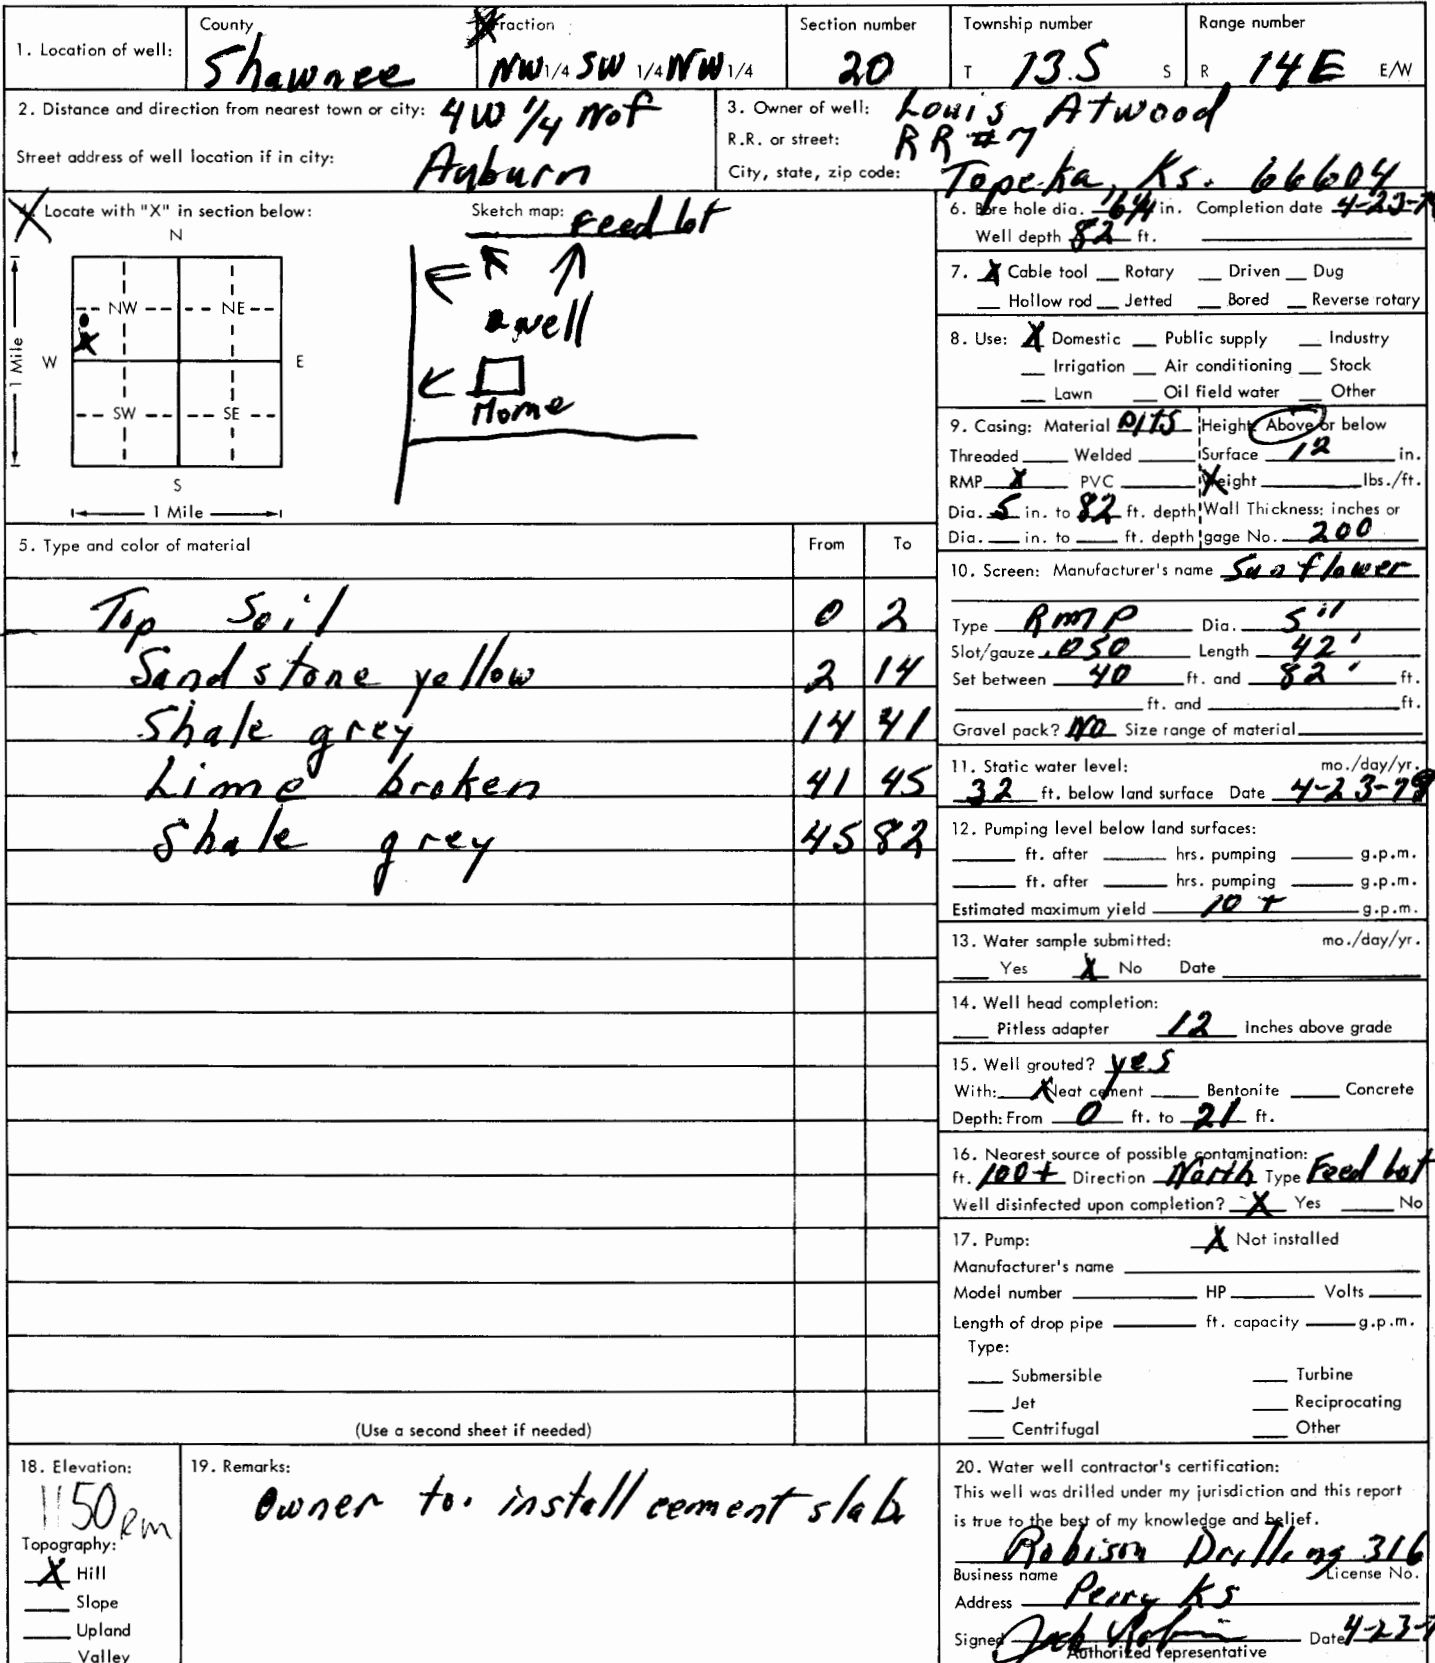 1. Location of well: County Shawnee Fraction NW 1/4 SW 1/4 NW 1/4 Section number 20 Township number T 13.S S Range number R 14E E/W
2. Distance and direction from nearest town or city: 4W 1/4 N of
Street address of well location if in city: Auburn
3. Owner of well: Louis Atwood
R.R. or street: RR #7
City, state, zip code: Topeka, Ks. 66604
4. Locate with "X" in section below:
N
NW NE
W E
SW SE
S
1 Mile
1 Mile
Sketch map: Feed lot
well
Home
5. Type and color of material From To
Top Soil 0 2
Sandstone yellow 2 14
Shale grey 14 41
Lime broken 41 45
Shale grey 45 82
(Use a second sheet if needed)
6. Bore hole dia. in. Completion date 4-23-
Well depth 82 ft.
7. X Cable tool Rotary Driven Dug
Hollow rod Jetted Bored Reverse rotary
8. Use: X Domestic Public supply Industry
Irrigation Air conditioning Stock
Lawn Oil field water Other
9. Casing: Material Height: Above or below
Threaded Welded Surface 12 in.
RMP X PVC Weight lbs./ft.
Dia. 5 in. to 82 ft. depth Wall Thickness: inches or
Dia. in. to ft. depth gage No. 200
10. Screen: Manufacturer's name Sunflower
Type RMP Dia. 5"
Slot/gauze .050 Length 42'
Set between 40 ft. and 82' ft.
ft. and ft.
Gravel pack? No Size range of material
11. Static water level: mo./day/yr.
32 ft. below land surface Date 4-23-78
12. Pumping level below land surfaces:
ft. after hrs. pumping g.p.m.
ft. after hrs. pumping g.p.m.
Estimated maximum yield 10 + g.p.m.
13. Water sample submitted: mo./day/yr.
Yes X No Date
14. Well head completion:
Pitless adapter 12 Inches above grade
15. Well grouted? yes
With: X Neat cement Bentonite Concrete
Depth: From 0 ft. to 21 ft.
16. Nearest source of possible contamination:
ft. 100+ Direction North Type Feed lot
Well disinfected upon completion? X Yes No
17. Pump: X Not installed
Manufacturer's name
Model number HP Volts
Length of drop pipe ft. capacity g.p.m.
Type:
Submersible Turbine
Jet Reciprocating
Centrifugal Other
18. Elevation:
1150 RM
Topography:
X Hill
Slope
Upland
Valley
19. Remarks:
owner to. install cement slab
20. Water well contractor's certification:
This well was drilled under my jurisdiction and this report
is true to the best of my knowledge and belief.
Robison Drilling 316
Business name License No.
Address Perry Ks
Signed Date 4-23-
Authorized representative